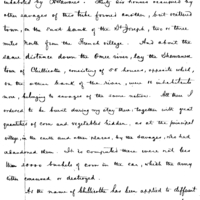 inhabited by Delawares. Thirty six houses occupied by
other savages of this tribe formed another, but scattered
town, on the east bank of the St. Joseph, two or three
miles north from the French village. And about the
same distance down the Maumee river, lay the Shawnese
town of Chillicothe, consisting of 58 houses, opposite which,
on the other bank of the river, were 16 habitations
belonging to savages of the same nation. All these I
ordered to be burnt during my stay there, together with great
quantities of corn and vegetables hidden, as at the principal
village, in the earth and other places, by the savages, who had
abandoned them. It is computed there were not less
than 20000 bushels of corn in the ear, which the army
consumed or destroyed.
As the name of Chillicothe has been applied to different